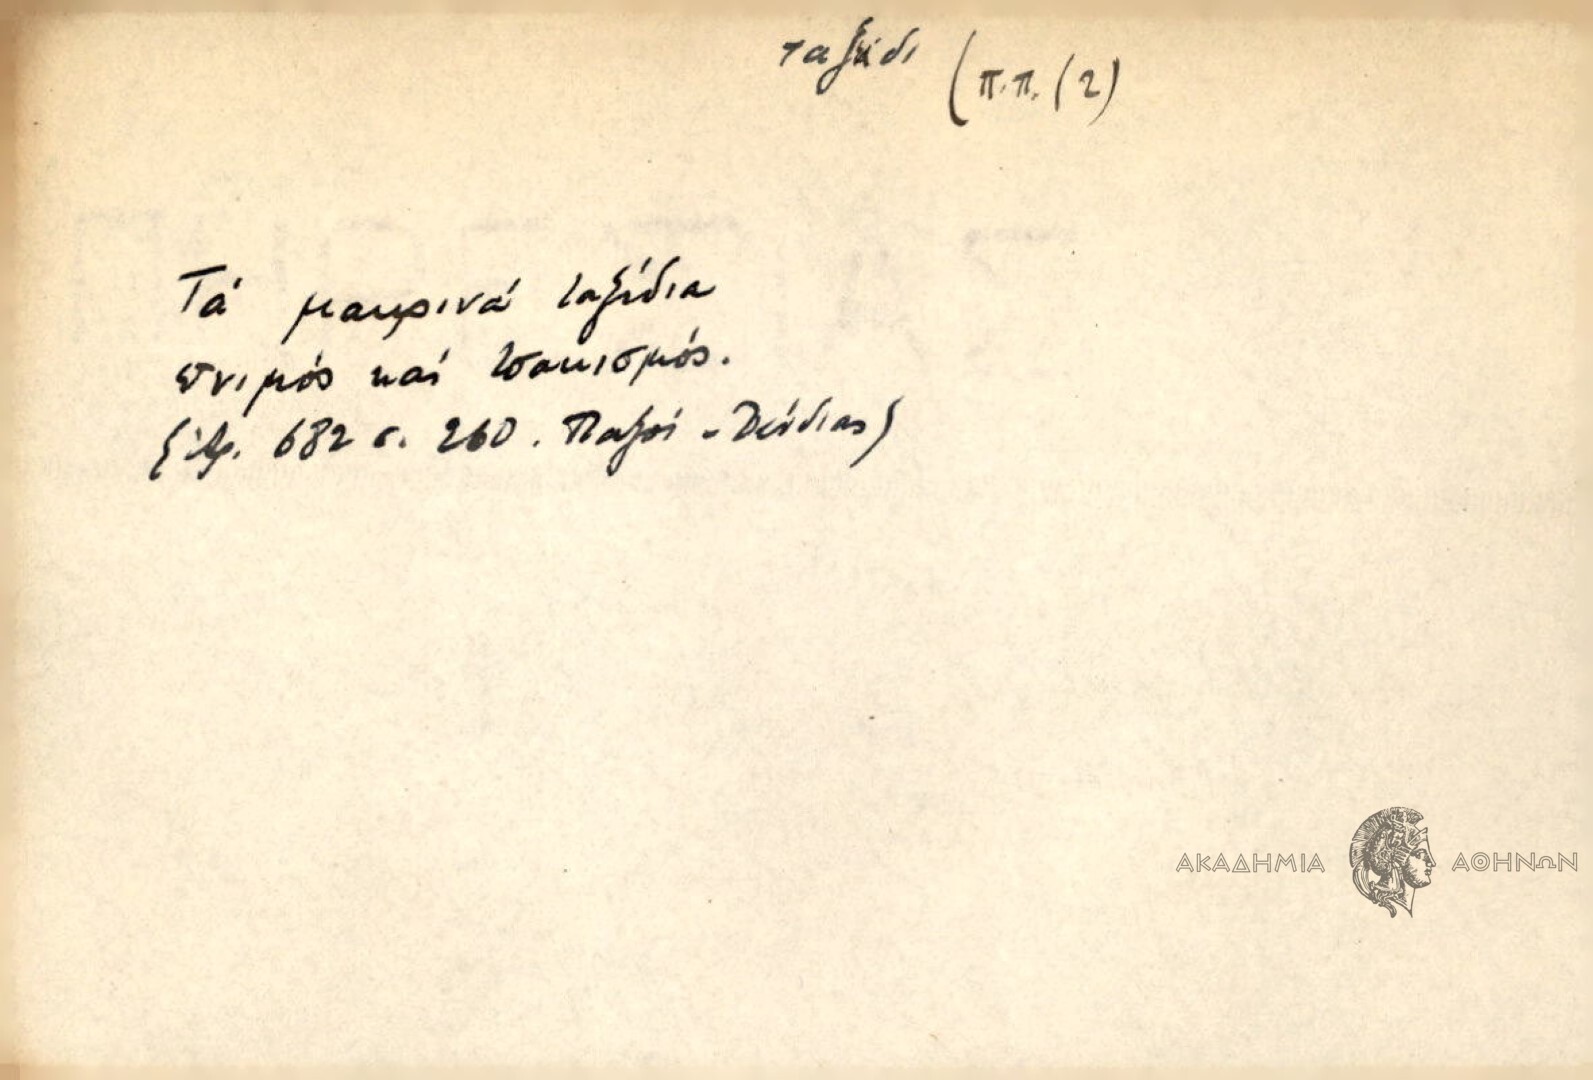 ταξίδι (π.π. (2)
Τά μακρινά ταξίδια
πνιμός καί τσακισμός.
682 σ. 260. Παξοί - Δένδιας
ΑΚΑΔΗΜΙΑ ΑΘΗΝΩΝ